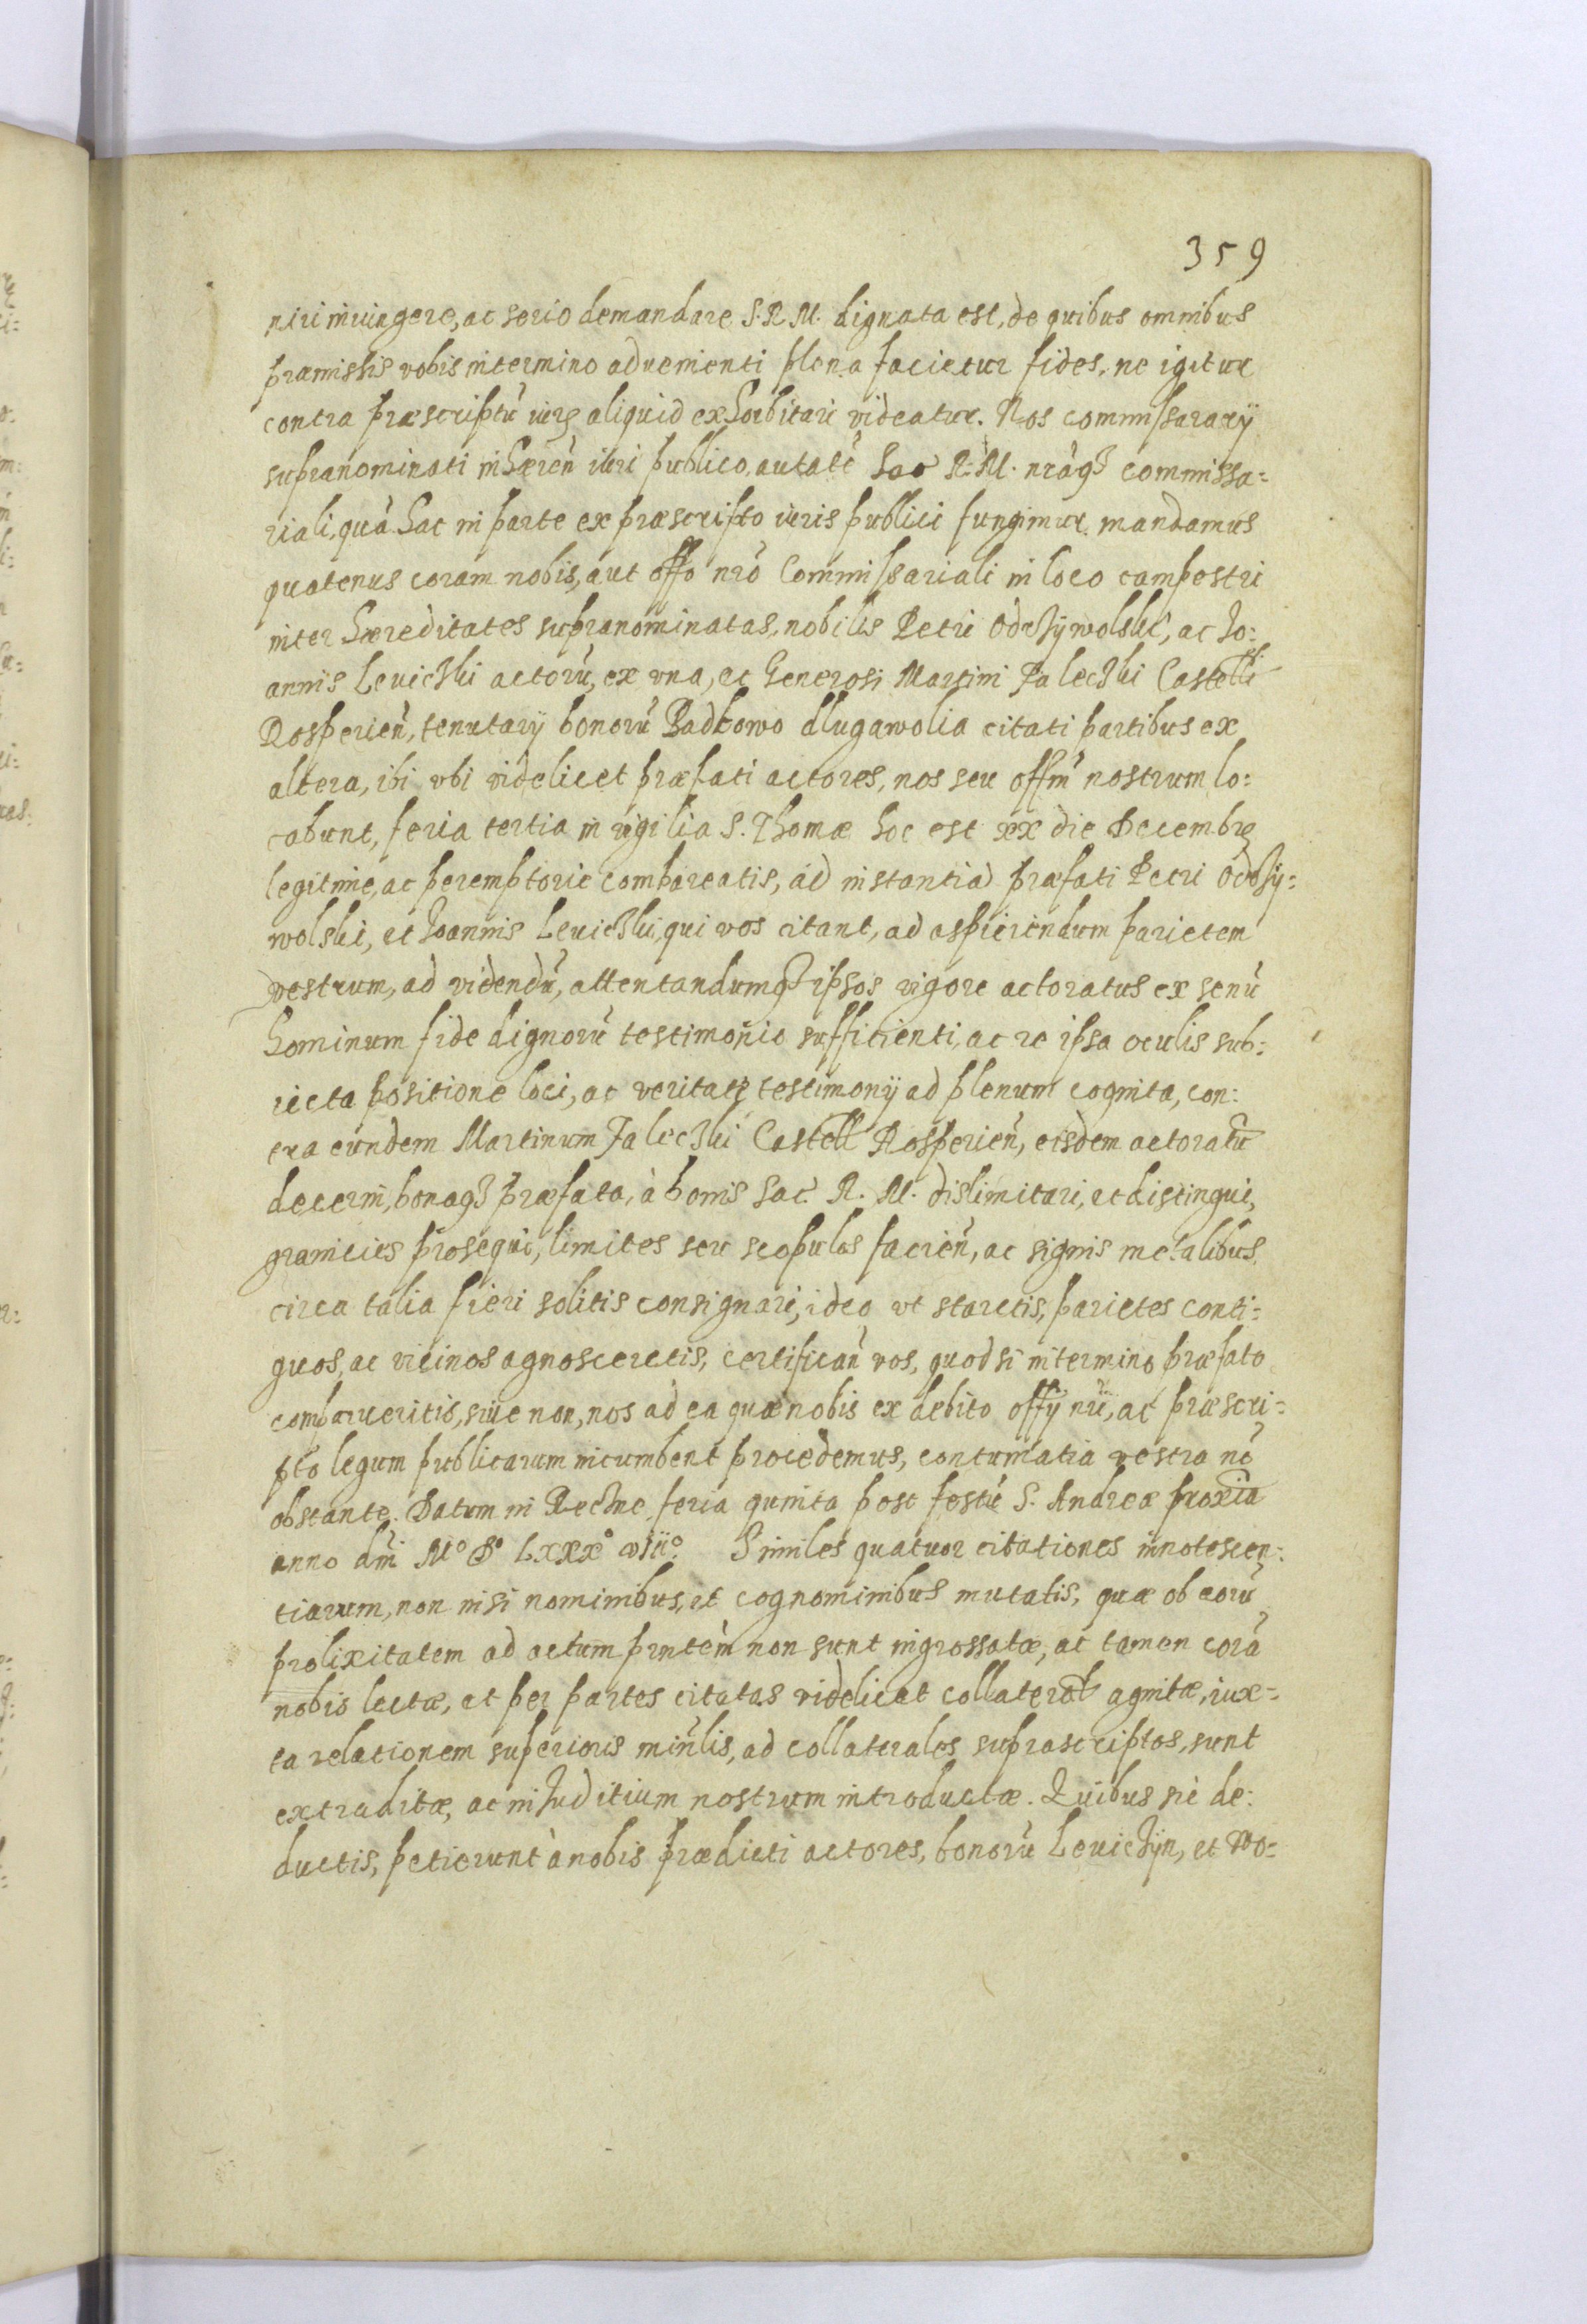 359
niri iniungere, ac serio demandare S. R. M. dignata est, de quibus omnibus
præmissis vobis in termino aduenienti plena facietur fides, ne igitur
contra præscriptũ iuris aliquid exhorbitari videatur. Nos commissarary
supranominati inhæreñ iuri publico, autatẽ Sac R. M. nrãq3 commissa=
riali, qua hac in parte ex præscripto iuris publici fungimur mandamus
quatenus coram nobis, aut offo nrõ Commissariali in loco campestri
inter hæreditates supranominatas, nobilis Petri Odrzÿwolski, ac Jo:
annis Leviczki actorũ, ex vna, et Generosi Martini Faleczki Castelli
Rosperieñ, tenutarÿ bonorũ Radkowo dlugawolia citati partibus ex
altera, ibi vbi videlicet præfati actores, nos seu offm̃ nostrum lo:
cabunt, feria tertia in vigilia S. Thomæ hoc est xx die Decembris
legitime, ac peremptorie compareatis, ad instantiã præfati Petri Odrzÿ=
wolski, et Joannis Leviczki, qui vos citant, ad aspiciendum parietem
vestrum, ad videndũ, attentandumq3 ipsos vigore actoratus ex senũ
hominum fide dignorũ testimonio sufficienti, ac re ipsa oculis sub:
iecta positione loci, ac veritatis testimonÿ ad plenum cognita, con:
tra eundem Martinum Faleczki Castell Rosperieñ, eisdem actoratũ
decerni, bonaq3 præfata, à bonis Sac. R. M. dislimitari, et distingui,
granicies prosequi, limites seu scopulos facieñ, ac signis metalibus
circa talia fieri solitis consignari, ideo vt staretis, parietes conti=
guos, ac vicinos agnosceretis, certificañ vos, quod si in termino præfato
comparueritis, siue non, nos ad ea quæ nobis ex debito offÿ nrĩ, ac præscri=
pto legum publicarum incumbent procedemus, contumatia vestra nõ
obstante. Datum in Reczne feria quinta post festũ S. Andreæ proxia
anno dm̃i Mº Dº LXXXº viiiº. Similes quatuor citationes innotescen:
tiarum, non nisi nominibus, et cognominibus mutatis, quæ ob eorũ
prolixitatem ad actum pñtem non sunt ingrossatæ, ac tamen corã
nobis lectæ, et per partes citatas videlicet collateral agnitæ, iux=
ta relationem superioris miñlis, ad collaterales suprascriptos, sunt
extraditæ, ac in Juditium nostrum introductæ. Quibus sic de:
ductis, petierunt à nobis prædicti actores, bonorũ Leviczÿn, et Wo=